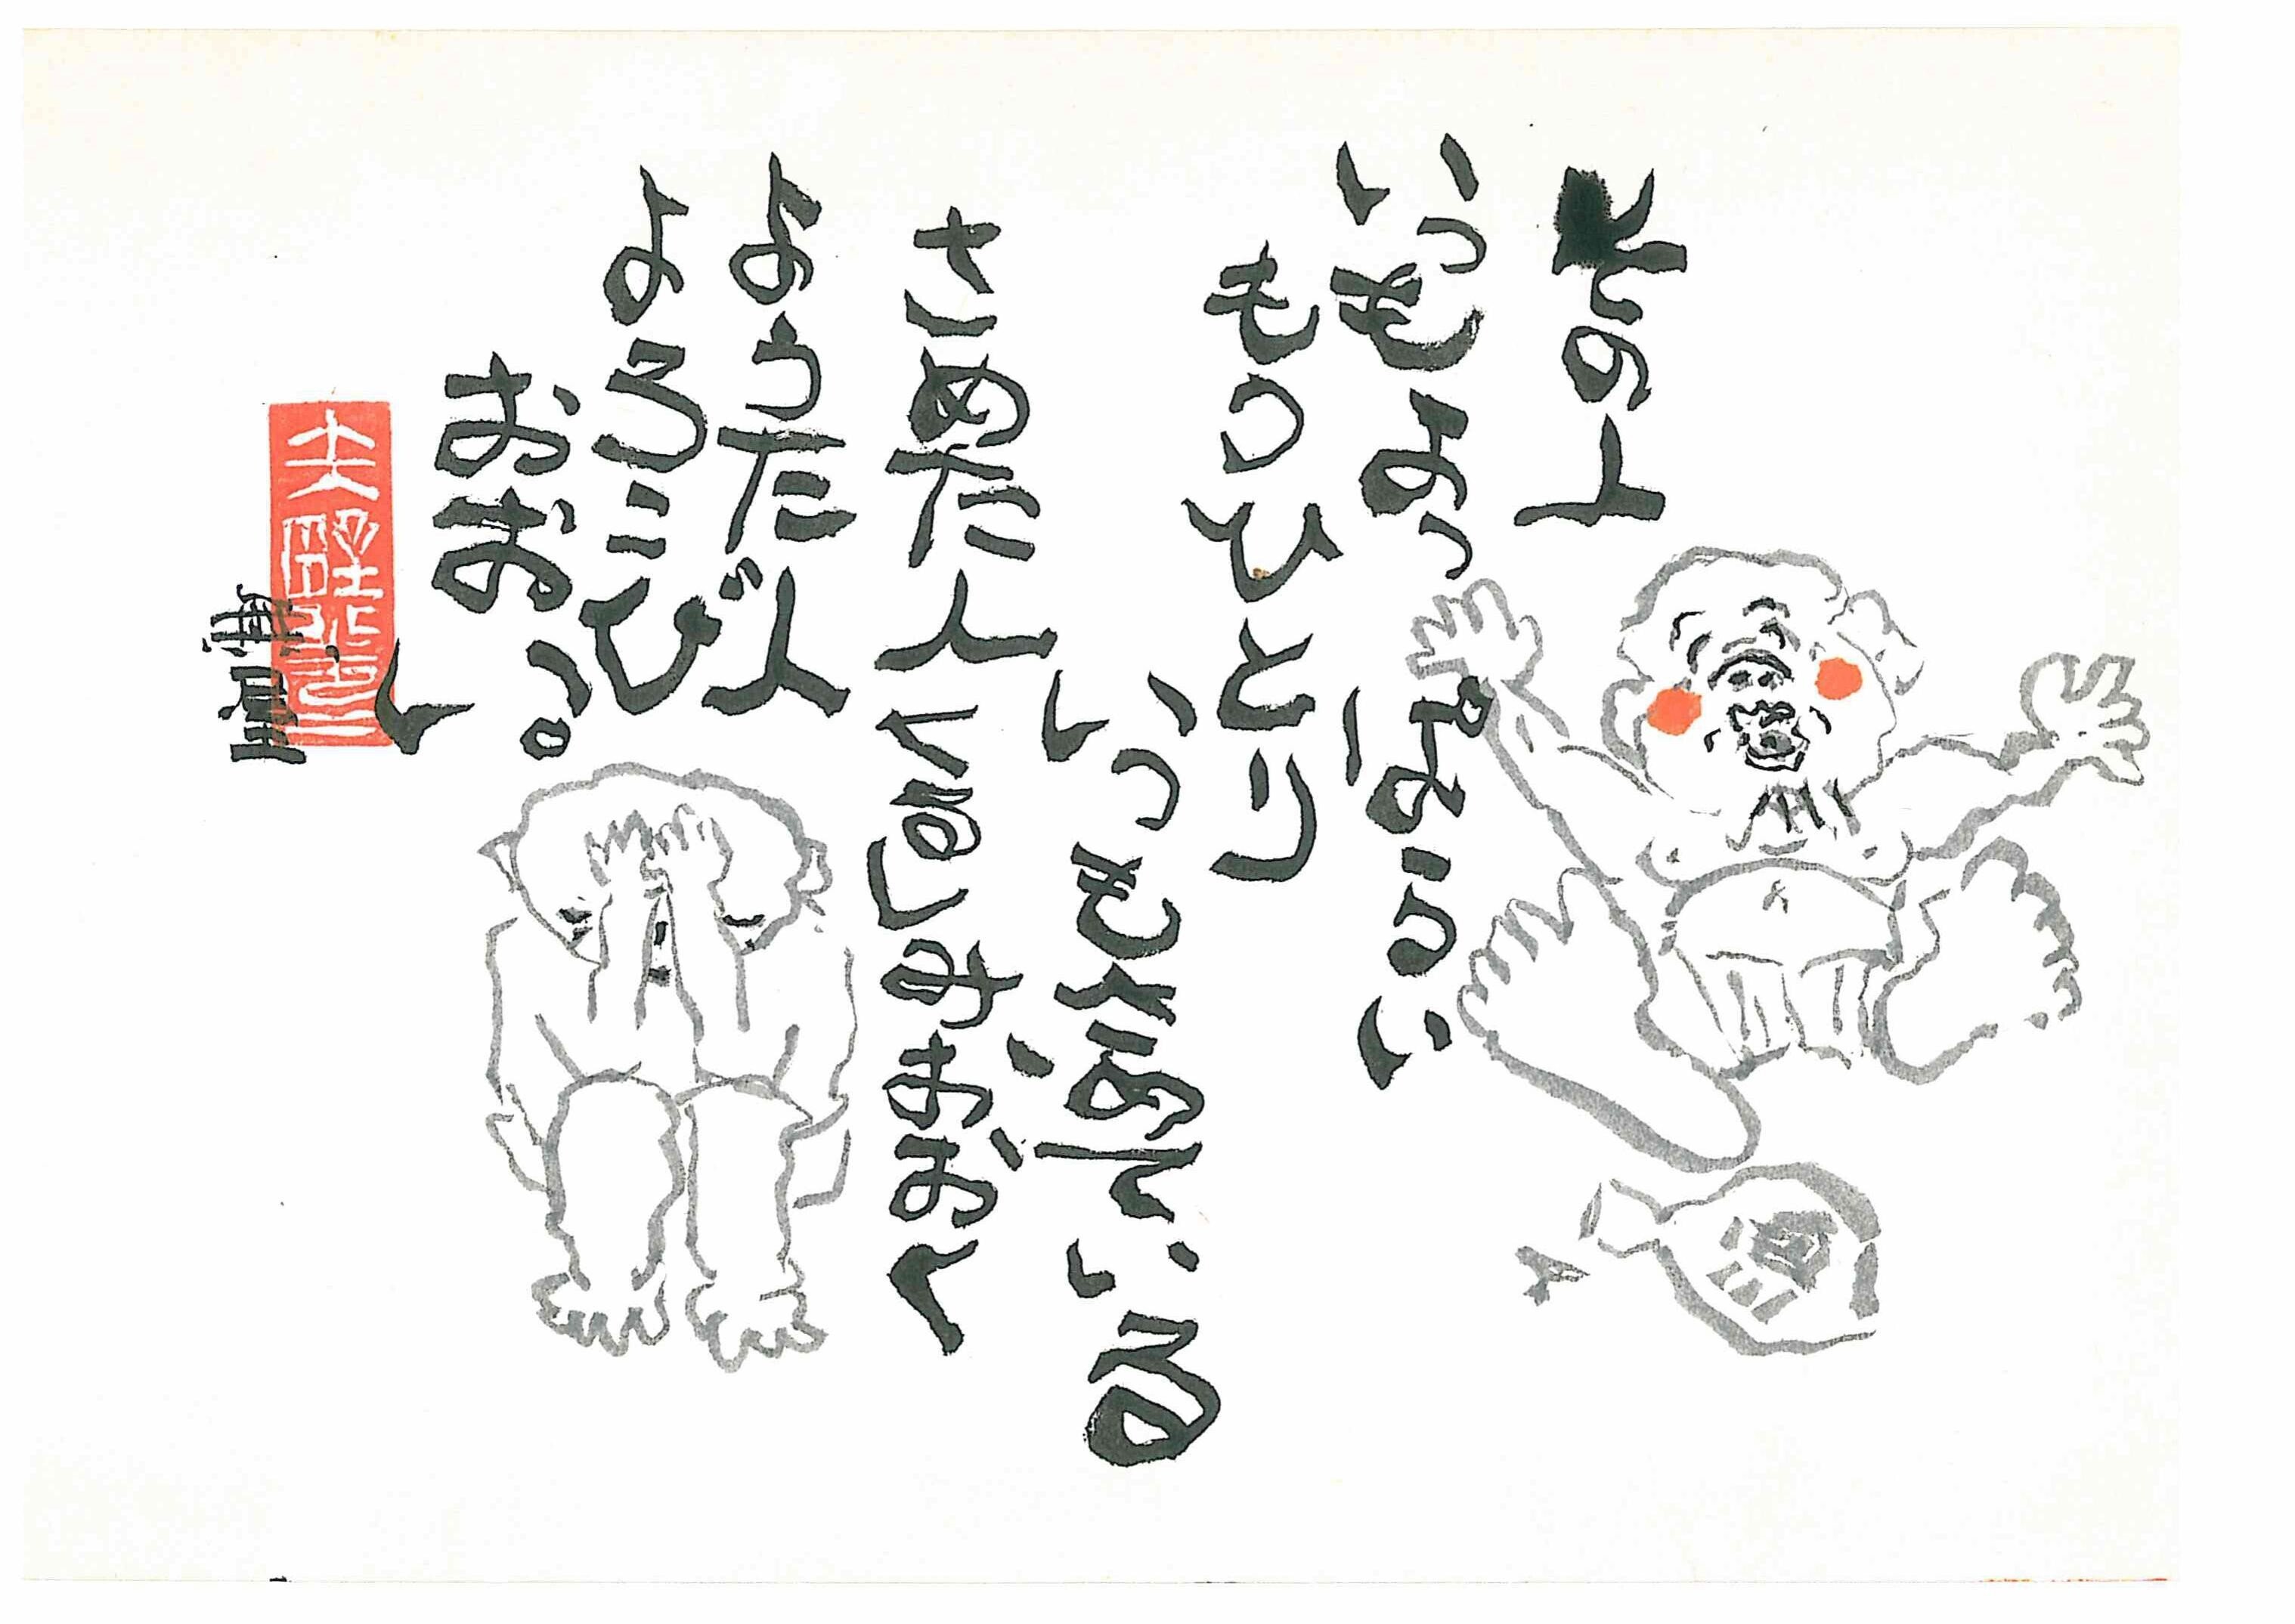 その人
いつもよっぱらい
もうひとり
いつもさめている
さめた人くるしみおおく
ようた人
よろこび
おおい。